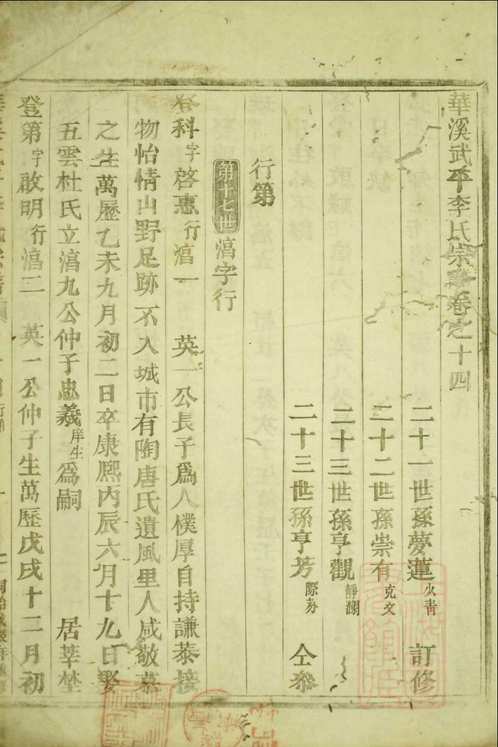 華溪武平李氏宗譜卷之十四
二十一世孫夢蓮火青 訂修
二十二世孫崇有克文
二十三世孫亨觀靜瀾
二十三世孫亨芳 仝叅
行第
第十七世 滈字行
登科字啓惠行滈一 英一公長子爲人樸厚自持謙恭接
物怡情山野足跡不入城市有陶唐氏遺風里人咸敬慕
之生萬歷乙未九月初二日卒康熙丙辰六月十九日娶
五雲杜氏立滈九公仲子忠義庠生爲嗣 居莘塋
登第字啟明行滈二 英一公仲子生萬歷戊戌十二月初